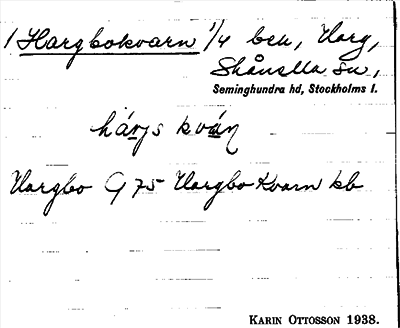 1 Hargbokvarn 1/4 beh, Harg,
Skånella sn,
Seminghundra hd, Stockholms l.
hárjs kván
Hargbo G 75 Hargbo Kvarn kb
KARIN OTTOSSON 1938.